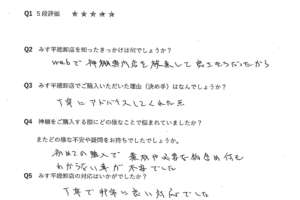 Q1 5段評価 ★★★★★
Q2 みす平總卸店を知ったきっかけは何でしょうか？
webで神棚専門店を検索して良さそうだったから
Q3 みす平總卸店でご購入いただいた理由（決め手）はなんでしょうか？
丁寧にアドバイスしてくれた
Q4 神棚をご購入する際にどの様なことで悩まれていましたか？
またどの様な不安や疑問をお持ちでしたでしょうか。
初めての購入で 何も
わからない事が不安でした
Q5 みす平總卸店の対応はいかがでしたか？
丁寧で非常に良い対応でした